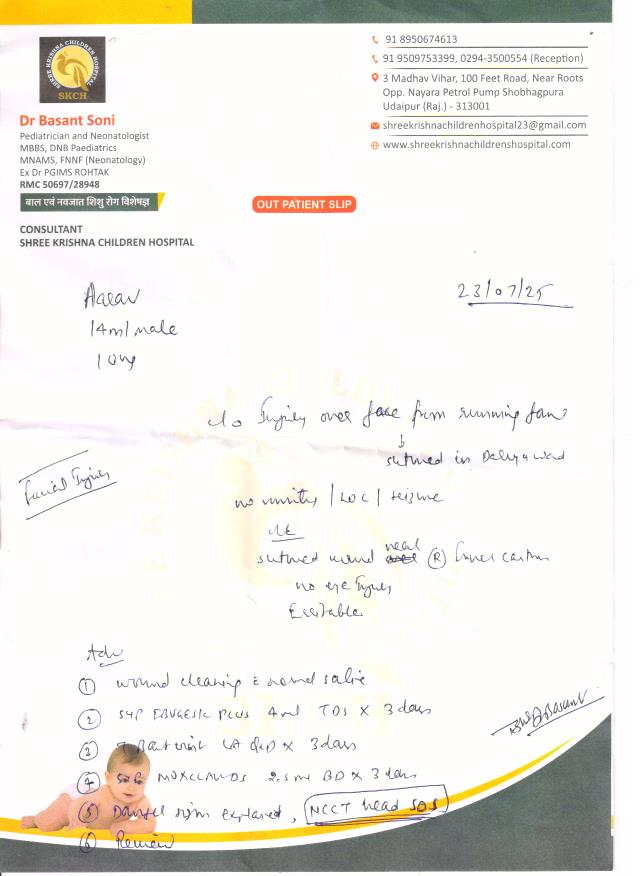 SHREE KRISHNA CHILDREN HOSPITAL
SKCH
Dr Basant Soni
Pediatrician and Neonatologist
MBBS, DNB Paediatrics
MNAMS, FNNF (Neonatology)
Ex Dr PGIMS ROHTAK
RMC 50697/28948
बाल एवं नवजात शिशु रोग विशेषज्ञ
CONSULTANT
SHREE KRISHNA CHILDREN HOSPITAL
91 8950674613
91 9509753399, 0294-3500554 (Reception)
3 Madhav Vihar, 100 Feet Road, Near Roots
Opp. Nayara Petrol Pump Shobhagpura
Udaipur (Raj.) - 313001
shreekrishnachildrenhospital23@gmail.com
www.shreekrishnachildrenshospital.com
OUT PATIENT SLIP
23/07/25
Aarav
14m/male
10kg
Injury over face from running fan
sutured in
Facial Injury
no vomiting / LOC / seizure
sutured wound near (R) Inner canthus
no eye Injury
Adv
1 wound cleaning c normal saline
2 SYP EBUGESIC PLUS 4ml TDS X 3 days
3 LA X 3 days
4 MOXCLAV DS 2.5ml BD X 3 days
5 Danger signs explained, NCCT head SOS
6 Review